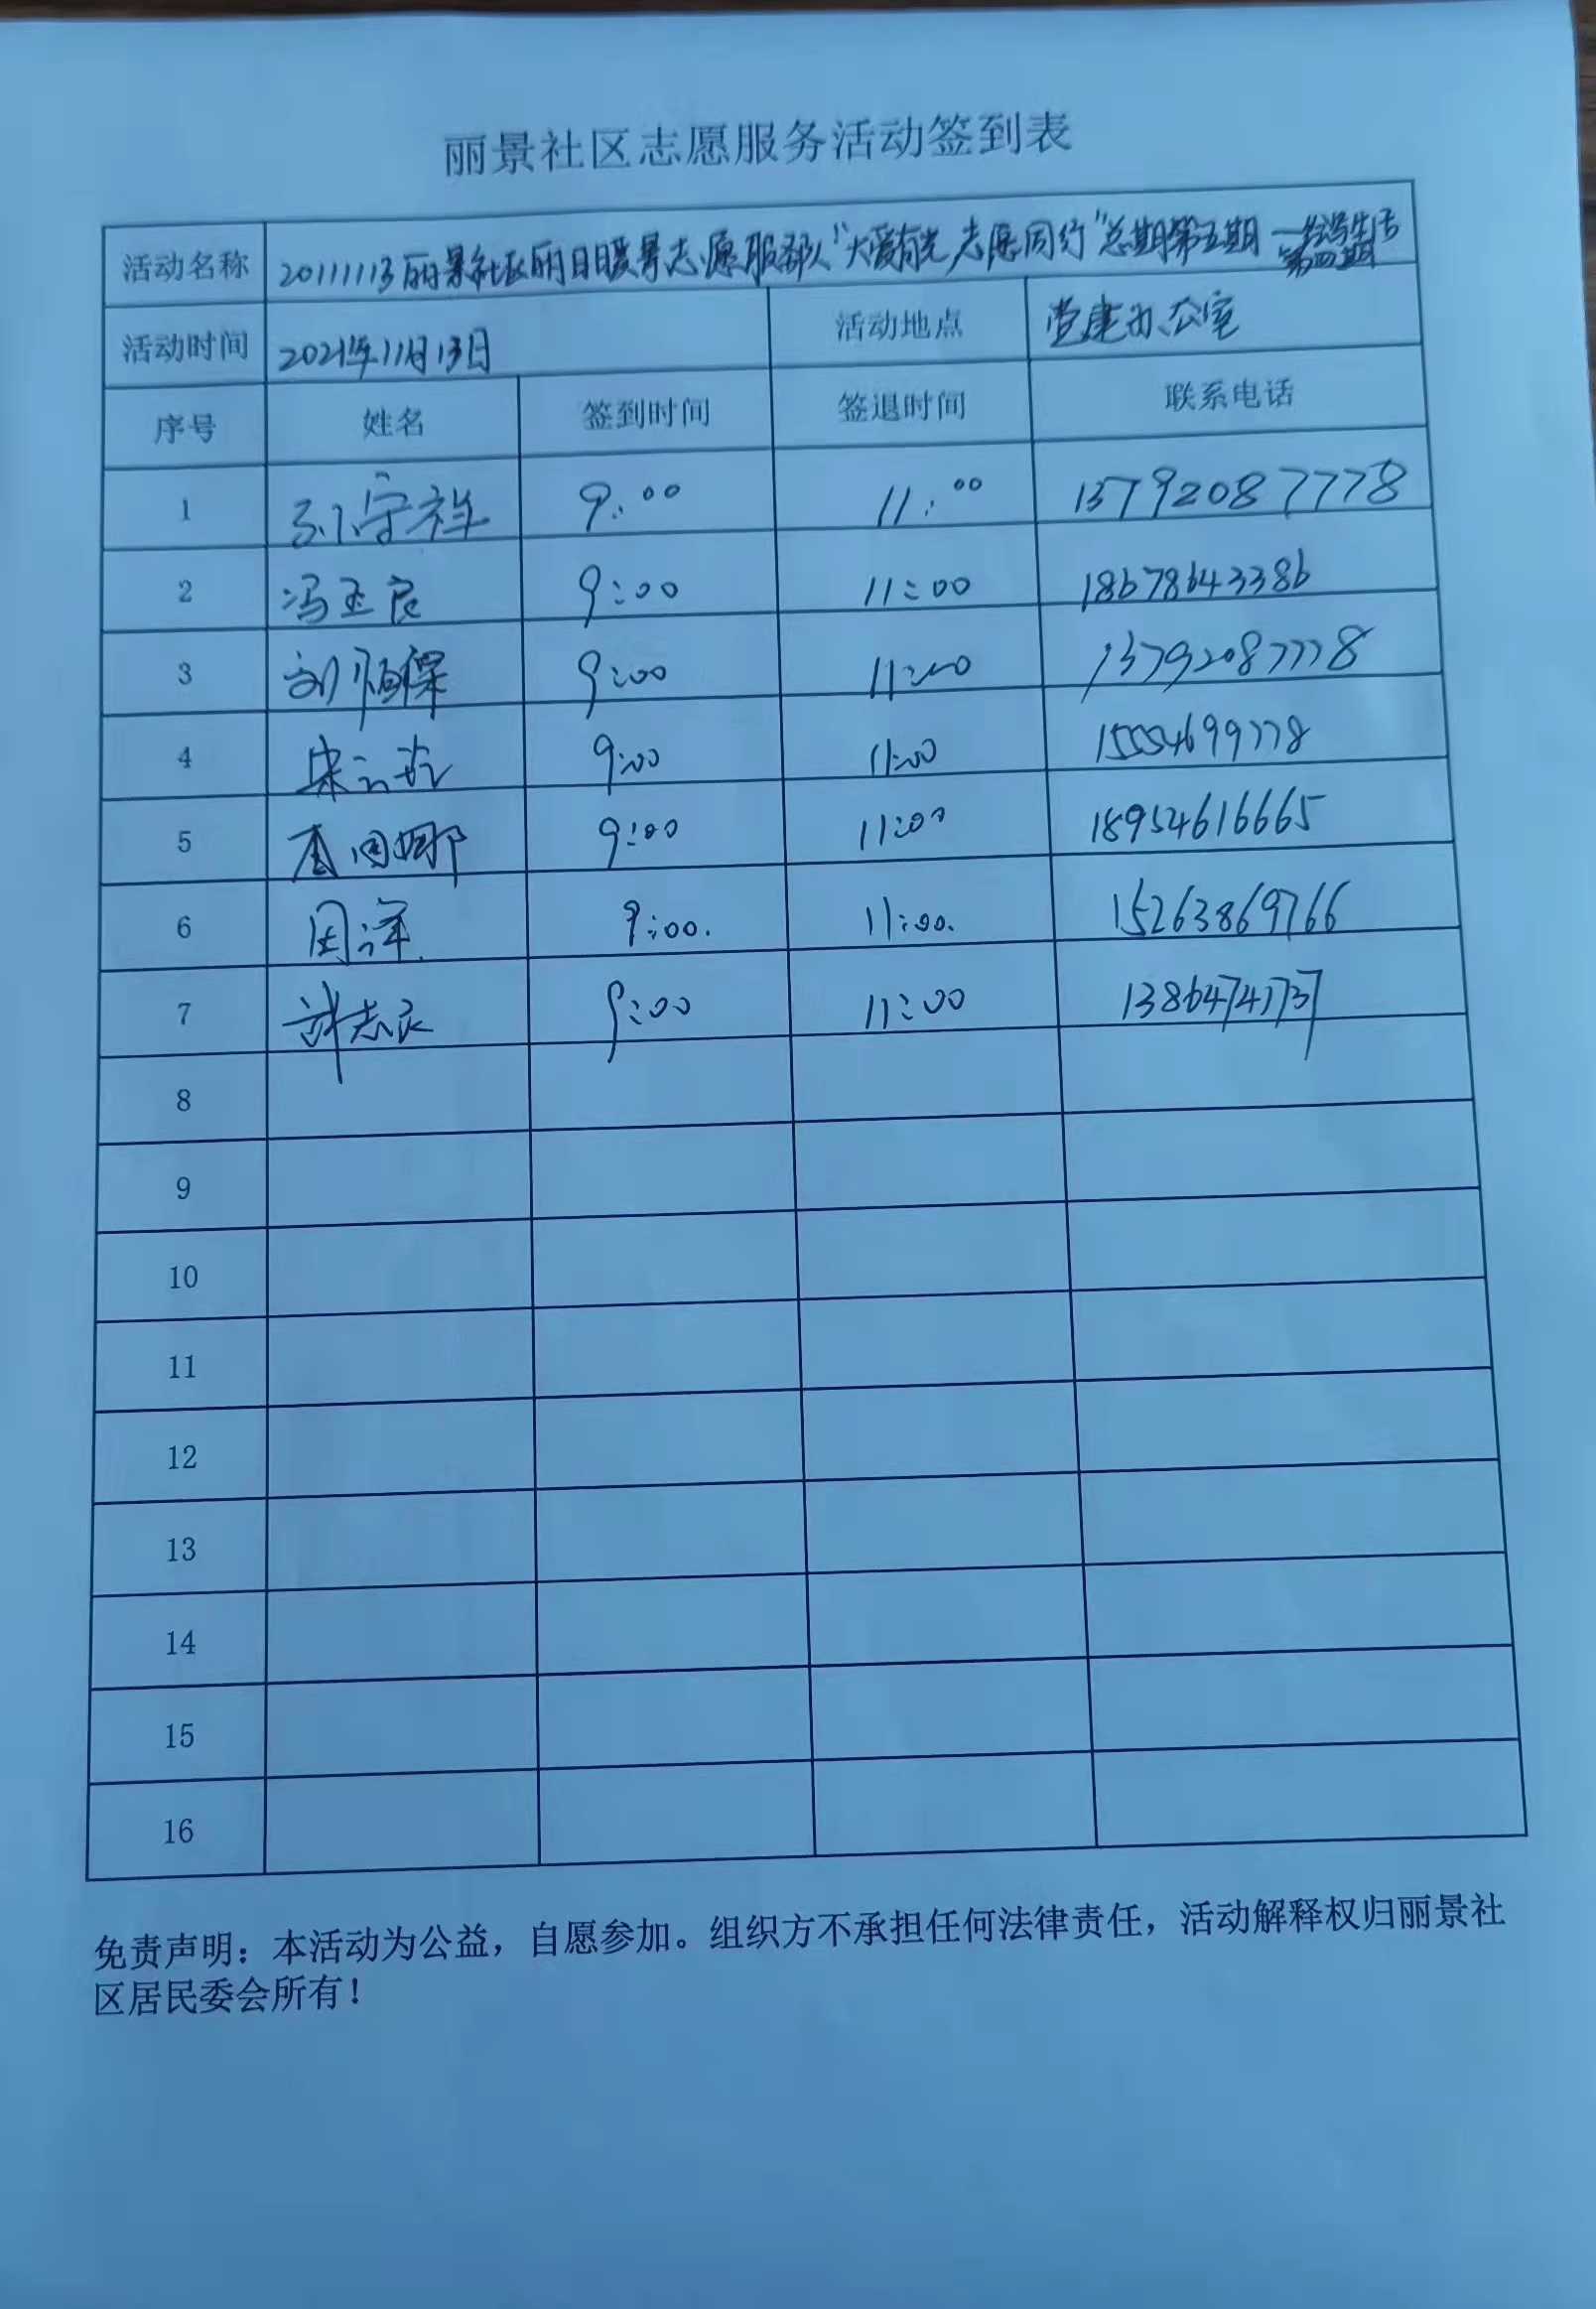 丽景社区志愿服务活动签到表
活动名称 20111113丽景社区丽日暖景志愿服务队"大爱有光 志愿同行"总期第五期—绘写生活
第四期
活动时间 2021年11月13日 活动地点 党建办公室
序号 姓名 签到时间 签退时间 联系电话
1 孙守祥 9:00 11:00 13792087778
2 冯玉良 9:00 11:00 18678643386
3 刘 9:00 11:00 13792087778
4 9:00 11:00 15554699778
5 9:00 11:00 18954616665
6 周洋 9:00. 11:00. 15263869766
7 许志良 9:00 11:00 13864741737
8
9
10
11
12
13
14
15
16
免责声明：本活动为公益，自愿参加。组织方不承担任何法律责任，活动解释权归丽景社
区居民委会所有！